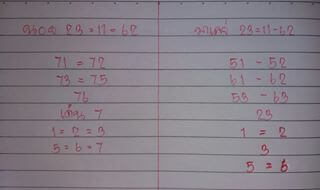 23 = 11 = 62
71 = 72
73 = 75
76
เด่น 7
1 = 2 = 3
5 = 6 = 7
23 = 11 - 62
51 - 52
61 - 62
53 - 63
23
1 = 2
3
5 = 6